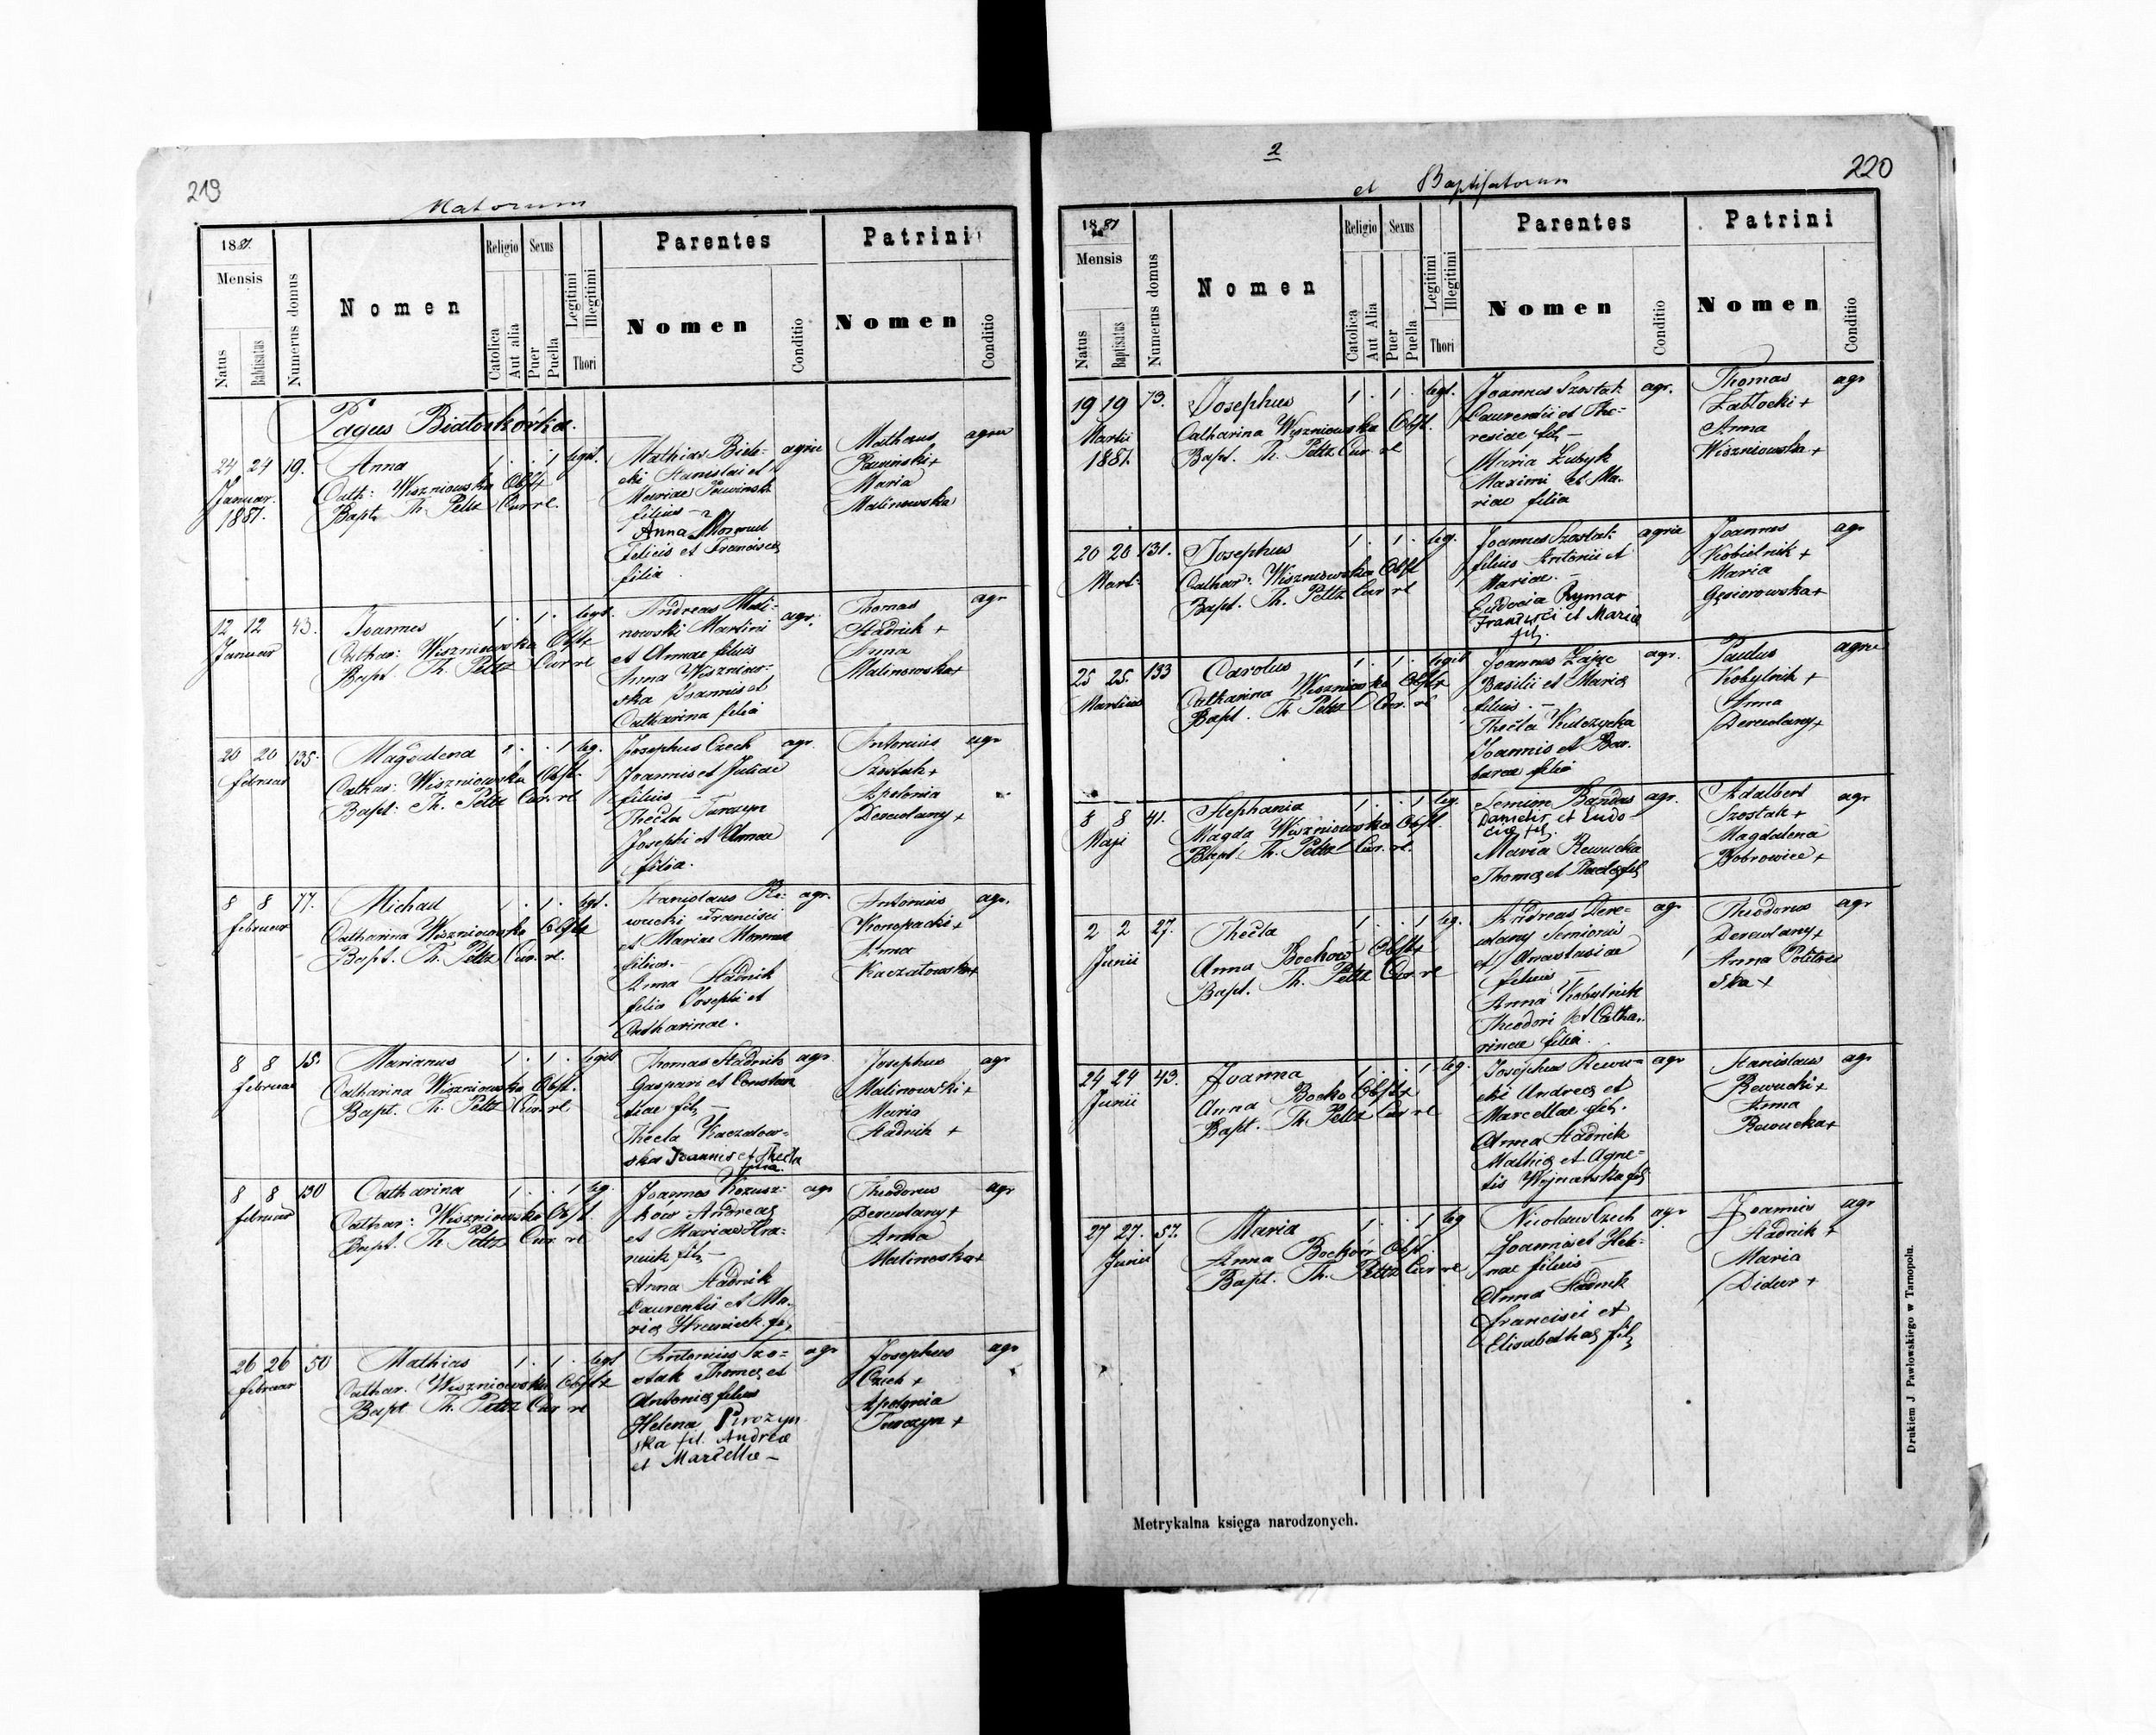 219
Natorum
1887.
Mensis
Natus
Babtisatus
Numerus domus
Nomen
Religio
Catolica
Aut alia
Sexus
Puer
Puella
Legitimi
Illegitimi
Thori
Parentes
Nomen
Conditio
Patrini
Nomen
Conditio
Pagus Białoskórka.
24 24 19. Anna 1 . . 1 legit.
Januar.
1887.
Cath: Wiszniowska Obst
Bapt. Th. Peltz Cur rl.
Mathias Biele-
cki Stanislai et
Mariae
filius
Anna
Felicis et Francisca
filia
agric
Mathaus
Pawinski +
Maria
Malinowska
12 12 43. Joannes 1 . 1 . legit.
Januar
Cathar: Wiszniowska Obst
Bapt. Th. Peltz Cur rl
Andreas Mali-
nowski Martini
et Annae filius
Anna Wiszniow-
ska Joannis et
Catharina filia
agr.
Thomas
Stadnik +
Anna
Malinowska +
agr
20 20 135. Magdalena 1 . . 1 leg.
Februar
Cathar: Wiszniowska Obst.
Bapt: Th. Peltz Cur. rl
Josephus Czech
Joannis et Juliae
filius —
Thecla Turczyn
Josephi et Annae
filia.
agr.
Antonius
Szostak +
Apolonia
Derewlany +
agr
8 8 77. Michael 1 . 1 . legt.
Februar
Catharina Wiszniowska Obst
Bapt. Th. Peltz Cur. rl.
Stanislaus Re-
wucki Francisci
et Mariae
filius. —
Anna Stadnik
filia Josephi et
Catharinae.
agr.
Antonius
Konopacki +
Anna
Kaczałowska +
agr.
8 8 15. Marianus 1 . 1 . legit
Februar
Catharina Wiszniowska Obst.
Bapt. Th. Peltz Cur. rl
Thomas Stadnik
Gaspari et Constan
tiae fil. —
Thecla Kaczałow-
ska Joannis et Thecla
filia.
agr.
Josephus
Malinowski +
Maria
Stadnik +
agr
8 8 130 Catharina 1 . . 1 leg.
Februar
Cathar: Wiszniowska Obst.
Bapt. Th. Peltz Cur. rl
Joannes Kozusz-
ków Andreas
et Mariae Hra-
niuk fil. —
Anna Stadnik
Laurentii et Ma-
ria
agr
Theodorus
Derewlany +
Anna
Malinowska +
agr
26 26 50 Mathias 1 . 1 . legt
Februar
Cathar. Wiszniowska Obst
Bapt Th. Peltz Cur rl
Antonius Szo-
stak Thomae et
Antonia filius
Helena Pirożyn
ska fil. Andreæ
et Marcellæ —
agr
Josephus
Czech +
Apolonia
Turczyn +
agr
2
220
et Baptisatorum
1887
Mensis
Natus
Baptisatus
Numerus domus
Nomen
Religio
Catolica
Aut Alia
Sexus
Puer
Puella
Legitimi
Illegitimi
Thori
Parentes
Nomen
Conditio
Patrini
Nomen
Conditio
19 19 73. Josephus 1 . 1 . legt.
Martii
1887.
Catharina Wiszniowska Obst.
Bapt. Th. Peltz Cur rl
Joannes Szostak
Laurentii et The-
resiae fil. —
Maria Zubyk
Maximi et Ma-
riae filia
agr.
Thomas
Zabłocki +
Anna
Wiszniowska +
agr
20 20 131. Josephus 1 . 1 . leg.
Mart.
Cathar: Wiszniowska Obst
Bapt. Th. Peltz Cur rl
Joannes Szostak
filius Antonii et
Mariae. —
Eudocia Rymar
Francisci et Mariæ
fil.
agric
Joannes
Kobielnik +
Maria
Gąsiorowska +
agr
25 25 133 Carolus 1 . 1 . legit
Martius
Catharina Wiszniowska Obst
Bapt. Th. Peltz Cur. rl
Joannes Zając
Basilii et Maria
filius. —
Thecla Kulczycka
Joannis et Bar-
barae filia
agr.
Paulus
Kobylnik +
Anna
Derewlany +
agri
8 8 41. Stephania 1 . . 1 leg.
Maji
Magda Wiszniowska Obst.
Bapt. Th. Peltz Cur. rl.
Bandas
et Eudo-
fil.
Maria Rewucka
Thomae et Theclae fil
agr.
Adalbert
Szostak +
Magdalena
Bobrowice +
agr
2 2 27. Thecla 1 . . 1 leg.
Junii
Anna Bockow Obst
Bapt. Th. Peltz Cur rl
Andreas Dere-
wlany
et Anastasiae
filius —
Anna Kobylnik
Theodori et Catha-
rinae filia.
agr
Theodorus
Derewlany +
Anna
ska +
agr
24 24 43. Joanna 1 . . 1 leg.
Junii
Anna Bocko Obst
Bapt. Th. Peltz Cur rl
Josephus Rewu-
cki Andreae et
Marcellae fil.
Anna Stadnik
Mathiae et Agne-
tis Wojnarska fil
agr
Stanislaus
Rewucki +
Anna
Rewucka +
agr
27 27. 57. Maria 1 . . 1 leg
Junii
Anna Bockow Obst.
Bapt. Th. Peltz Cur rl
Nicolaus Czech
Joannis et Hele-
nae filius —
Anna Stadnik
Francisci et
Elisabethae fil
agr
Joannis
Stadnik +
Maria
Didur +
agr
Metrykalna księga narodzonych.
Drukiem J. Pawłowskiego w Tarnopolu.